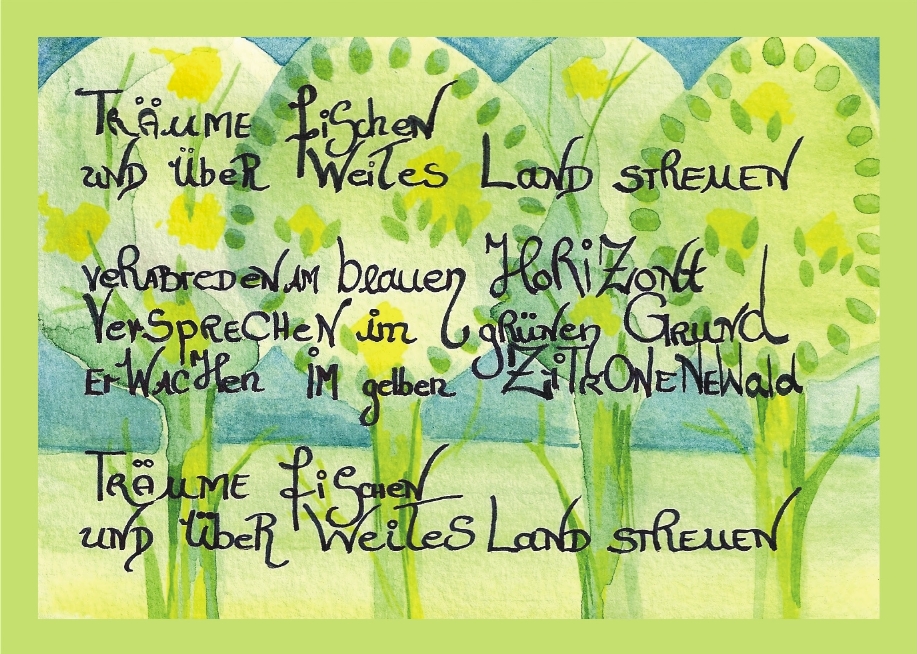 TRÄUME fiSCHEN
uND ÜbeR WeiTes LAND STREUEN
veRABREDEN AM blauen HoRiZont
VerSpReCHeN im gRüNen GRUND
ErWACHen iM gelben ZiTRONeNeWald
TRÄUME fiSCHEN
uND ÜbeR WeiTeS LAND STREUEN